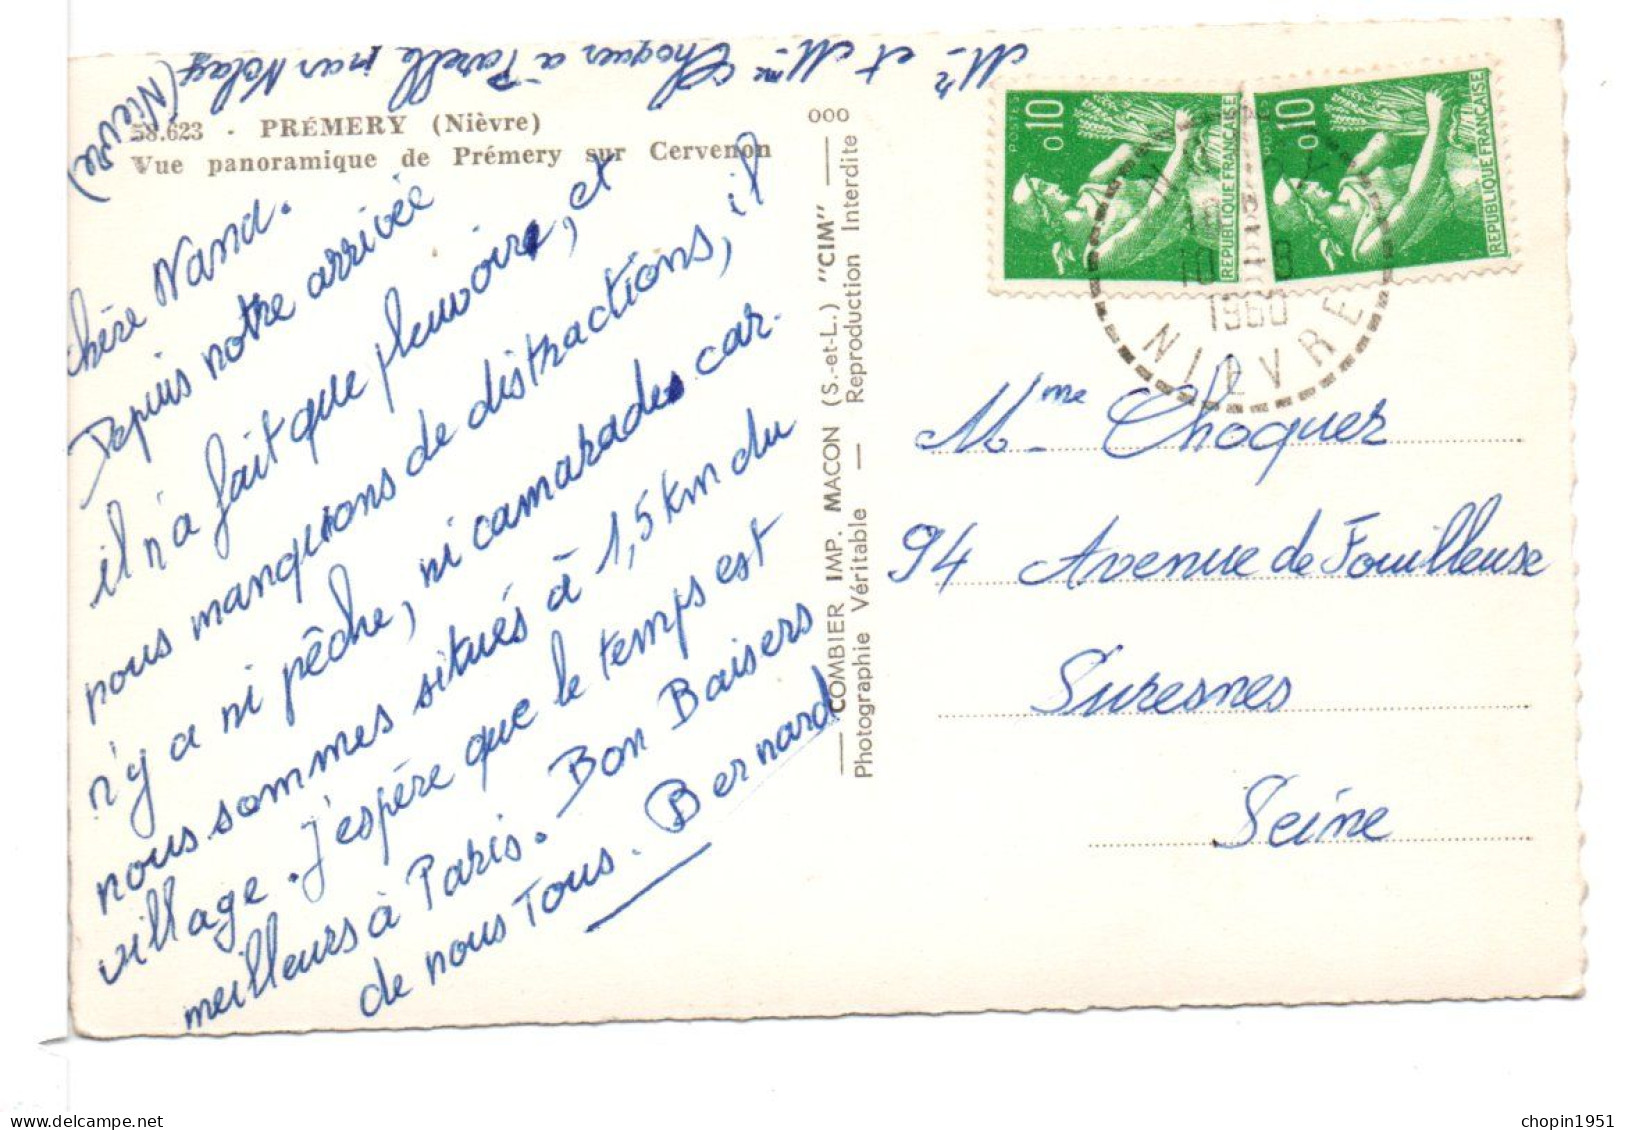 Mr et Mme Choquer à Parelle par Nolay
(Nièvre)
58.623 - PRÉMERY (Nièvre)
Vue panoramique de Prémery sur Cervenon
chère Nand.
Depuis notre arrivée
il n'a fait que pleuvoir, et
nous manquions de distractions, il
n'y a ni pêche, ni camarades car
nous sommes situés à 1,5 km du
village. J'espère que le temps est
meilleurs à Paris. Bon Baisers
de nous Tous. Bernard
000
COMBIER IMP. MACON (S.-et-L.) "CIM"
Photographie Véritable — Reproduction Interdite
POSTES 0,10 REPUBLIQUE FRANÇAISE
POSTES 0,10 REPUBLIQUE FRANÇAISE
1960
NIEVRE
Mme Choquer
94 Avenue de Fouilleuse
Suresnes
Seine
chopin1951